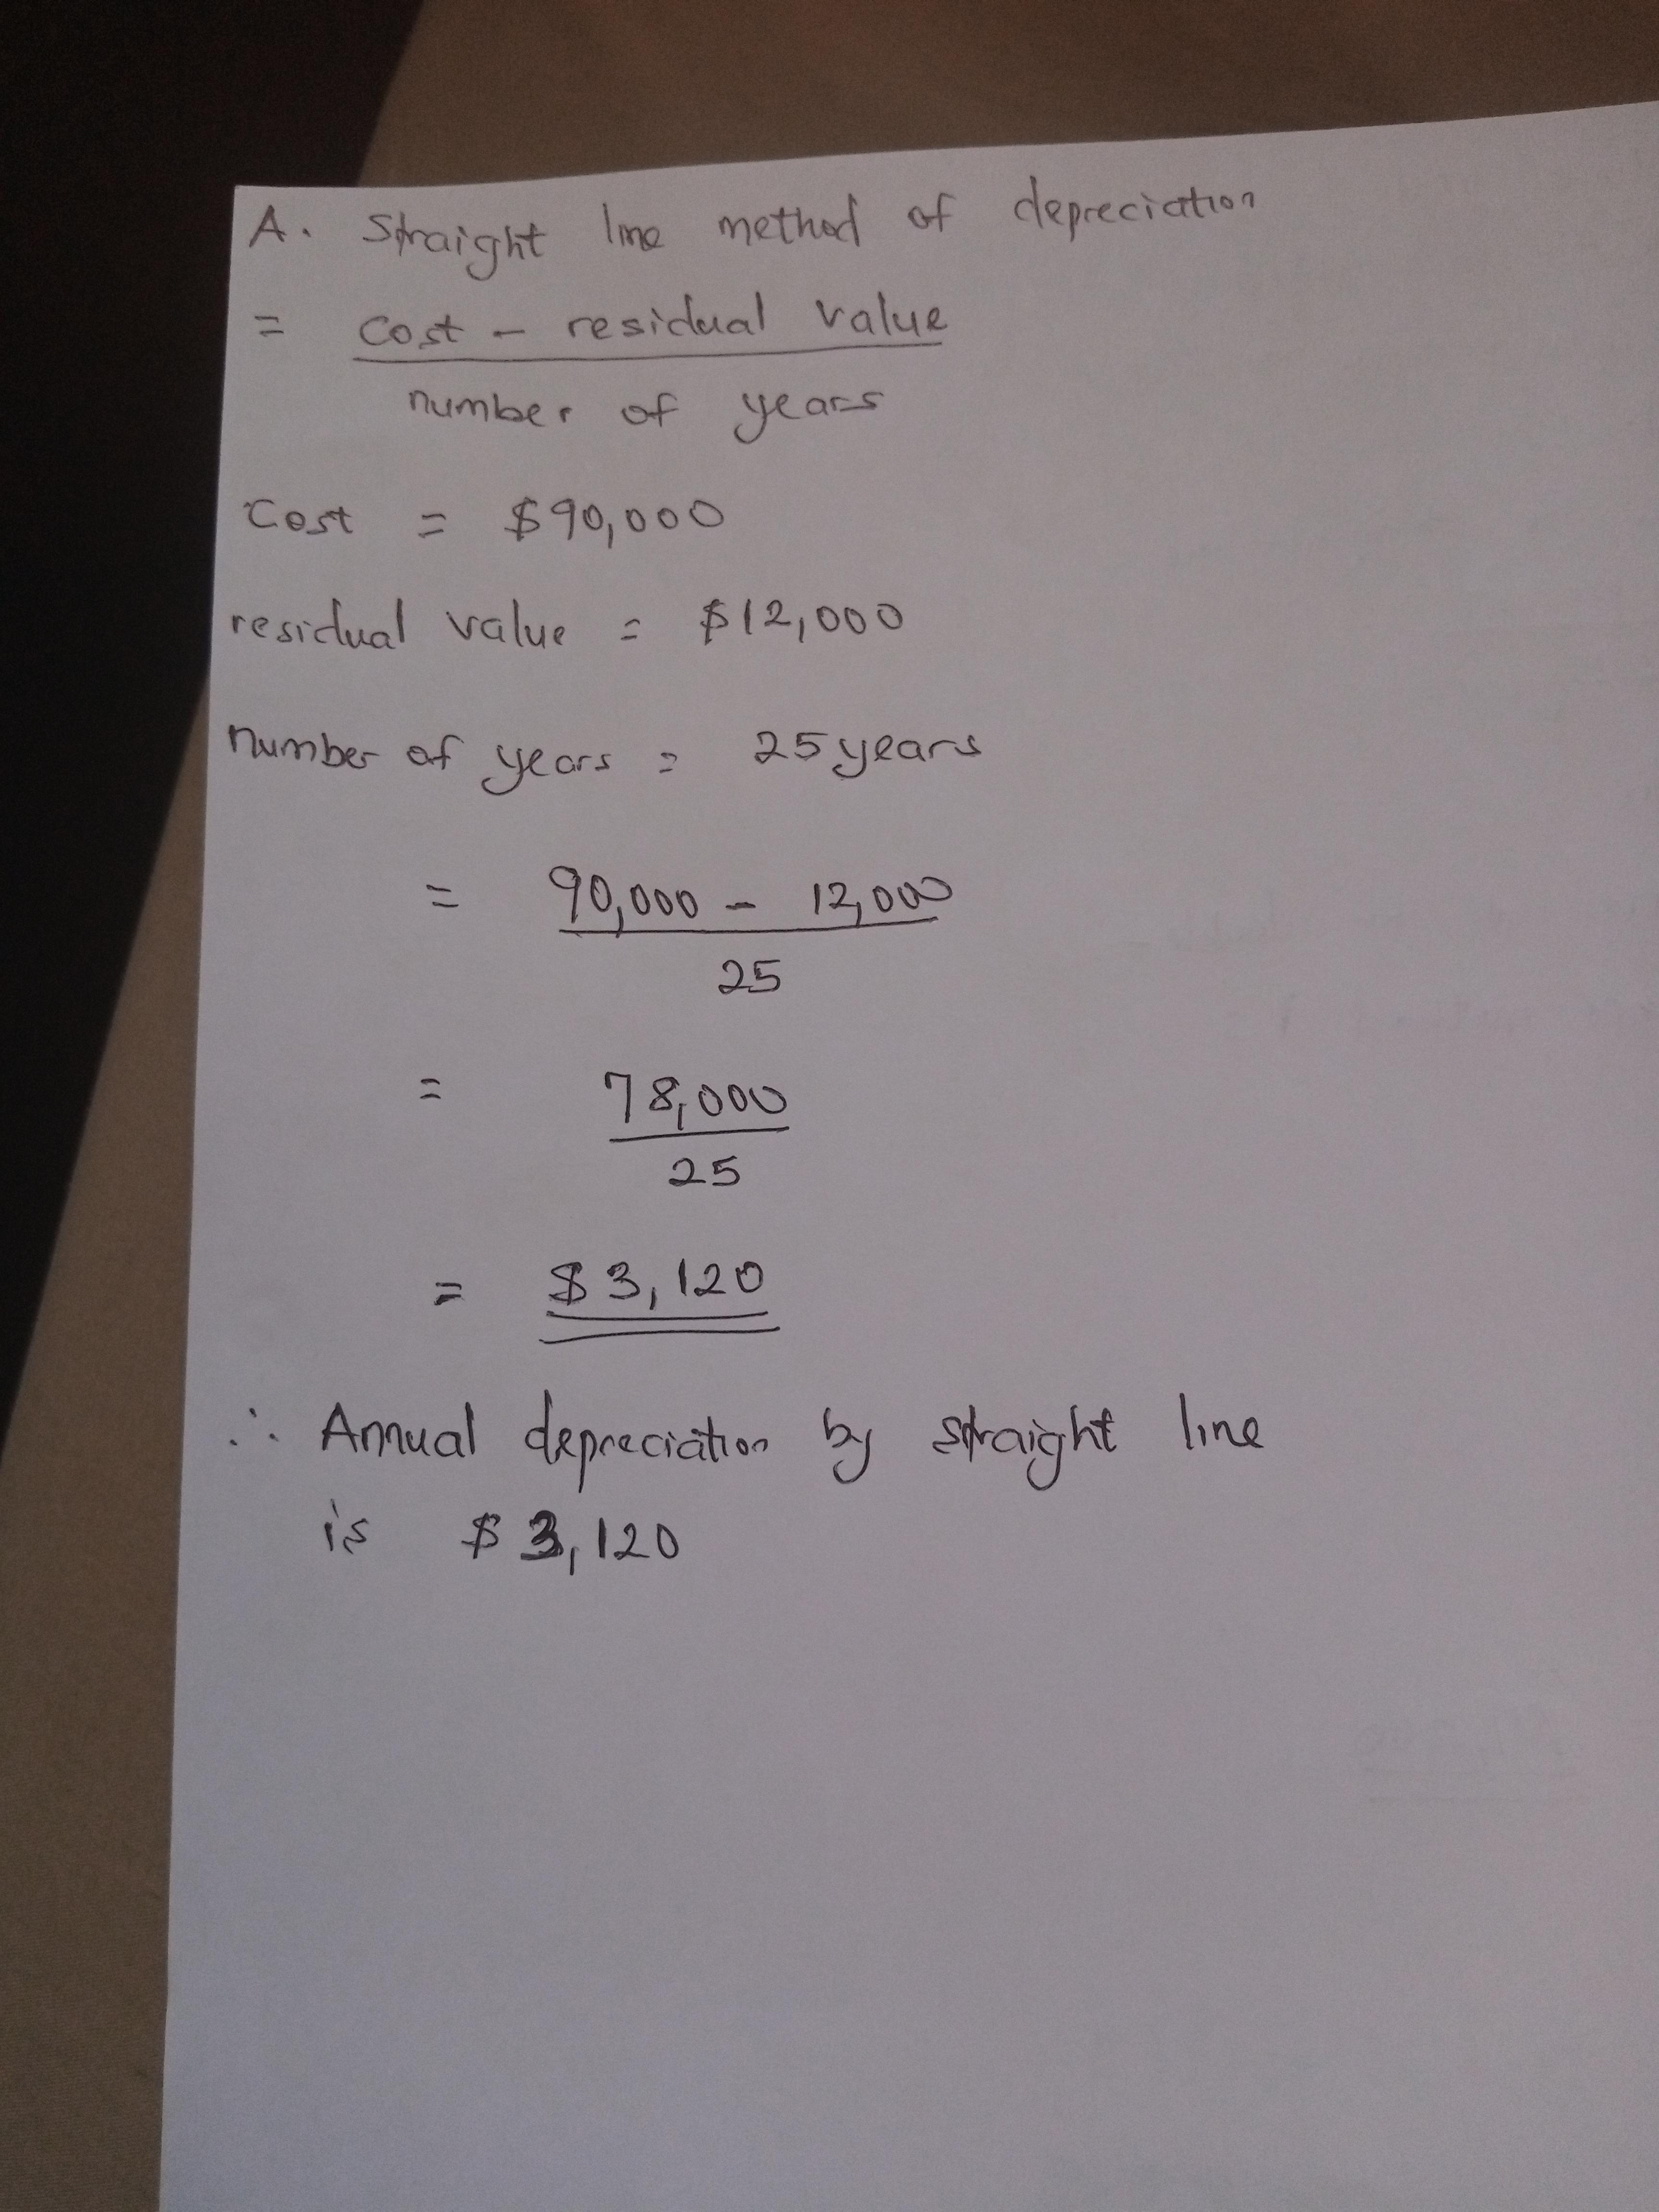 A. Straight line method of depreciation
= cost - residual value
number of years
Cost = $90,000
residual value = $12,000
number of years = 25 years
= 90,000 - 12,000
25
= 78,000
25
= $3,120
∴ Annual depreciation by straight line
is $3,120